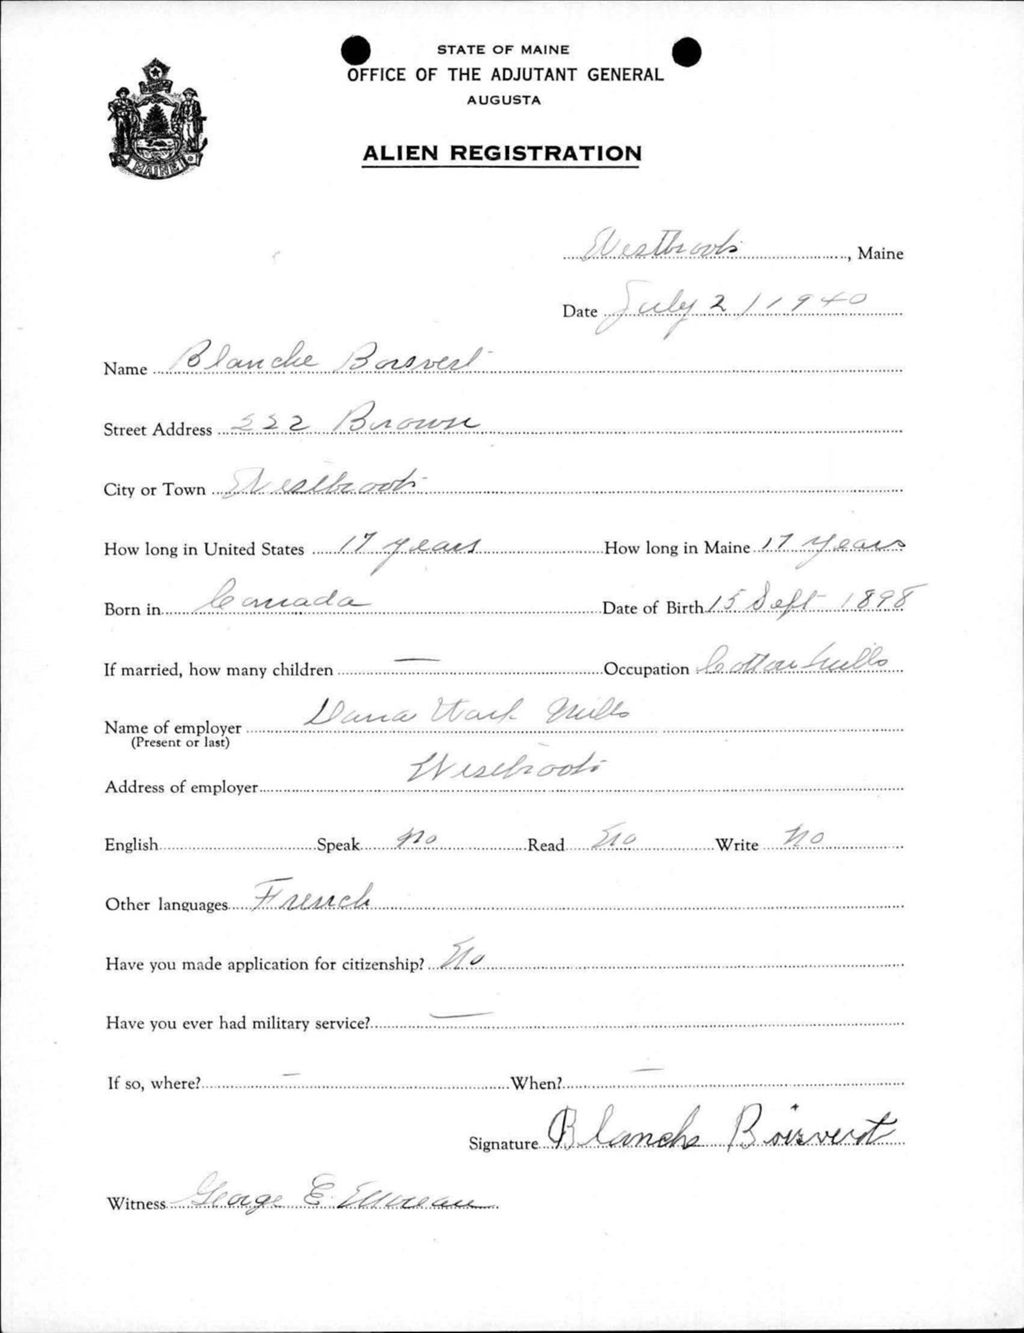 STATE OF MAINE
OFFICE OF THE ADJUTANT GENERAL
AUGUSTA
ALIEN REGISTRATION
MAINE
Westbrook, Maine
Date July 2 / 1940
Name Blanche Boisvert
Street Address 222 Brown
City or Town Westbrook
How long in United States 17 years How long in Maine 17 years
Born in Canada Date of Birth 15 Sept 1898
If married, how many children — Occupation Cotton Mills
Name of employer Dana Warp Mills
(Present or last)
Address of employer Westbrook
English Speak No Read No Write No
Other languages French
Have you made application for citizenship? No
Have you ever had military service? —
If so, where? — When? —
Signature Blanche Boisvert
Witness George E.